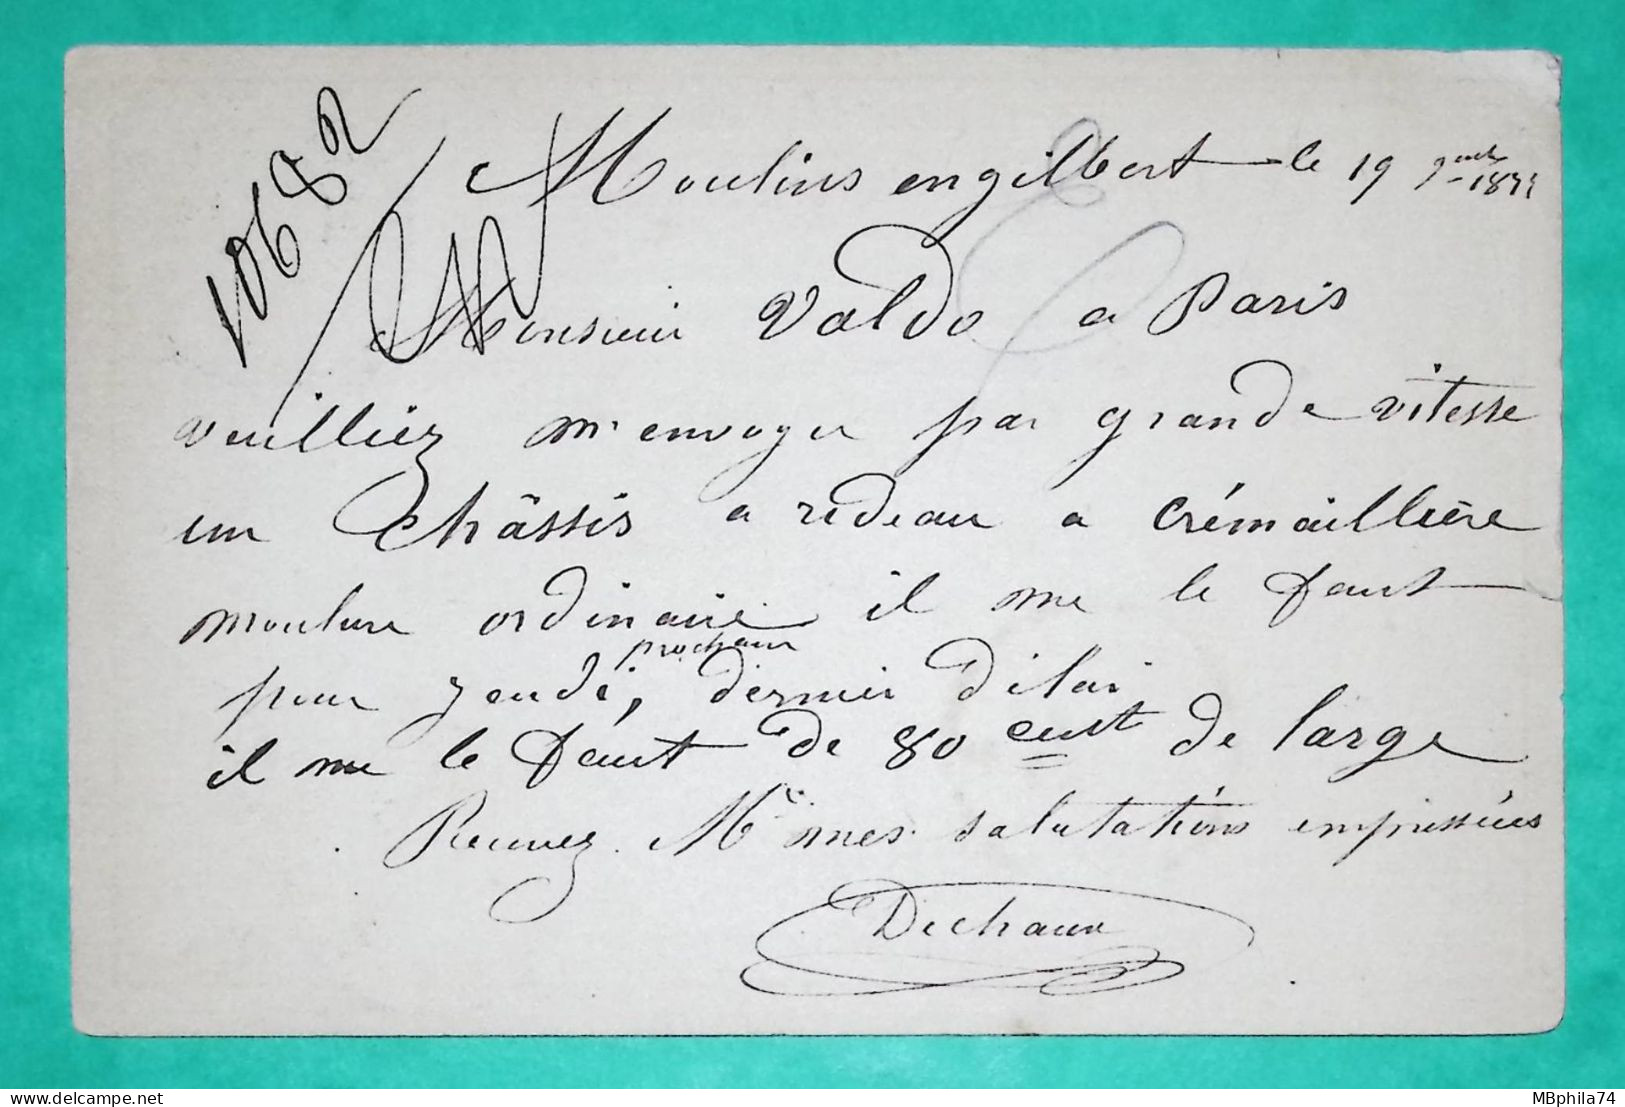 10682
Moulins engilbert le 19 9bre 1877
Monsieur Valdo a Paris
veuilliez m'envoyer par grande vitesse
un Châssis a rideau a crémaillière
moulure ordinaire il me le faut
pour jeudi prochain, dernier délai
il me le faut de 80 cent de large
Recevez Mr mes salutations empressées
Dechaux
MBphila74